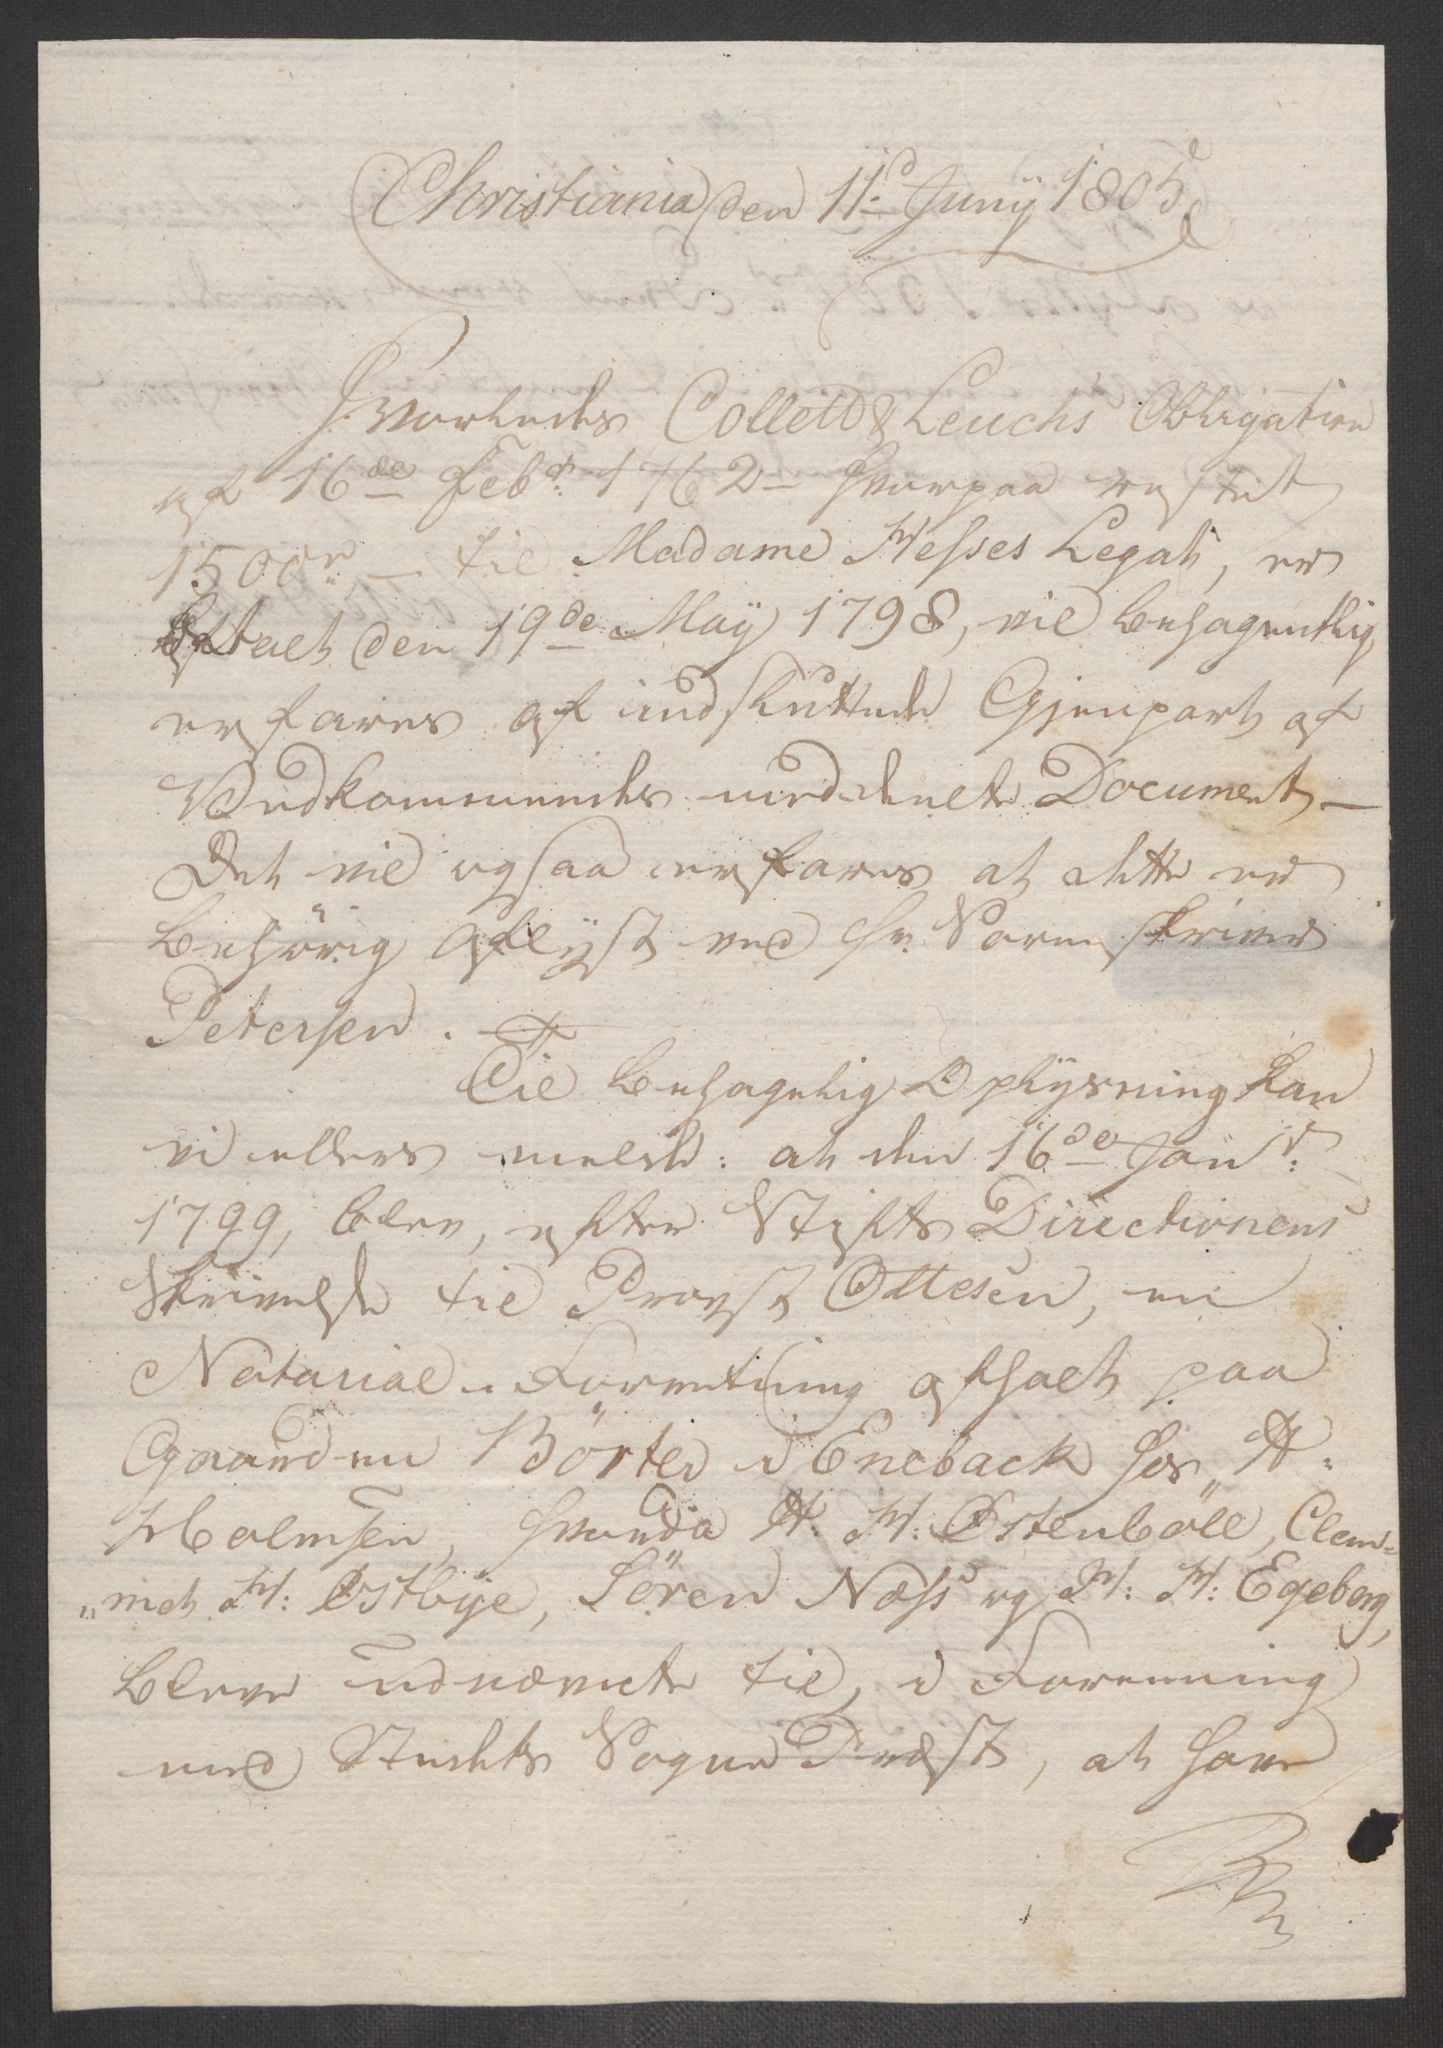 Christiania den 11d Junÿ 1805
Hvorledes Collett & Leuchs Obligation
af 16de Febr: 1762 – hvorpaa restet
1500 rd, – til Madame Hesses Legat, er
betalt den 19de Maÿ 1798, vil behagentlig
erfares af indsluttede Gjenpart af
Vedkommendes meddeelte Document –
Det vil ogsaa erfares at dette er
behörig aflÿst ved Hr. Sorenskriver
Petersen. –
Til behagelig Oplÿsning kan
vi ellers melde: at den 16de Janr:
1799, blev, efter Stifts Directionens
Skrivelse til Provst Ottesen, en
Notarial-Forretning afholt paa
Gaarden Börter i Eneback hos A:
Holmsen, hvorda A: H: Østenböll, Clem=
„met H: Østbÿe, Sören Næss og H: H: Egeberg,
bleve udnævnte til, i Forening
med Stedets Sogne Præst, at have